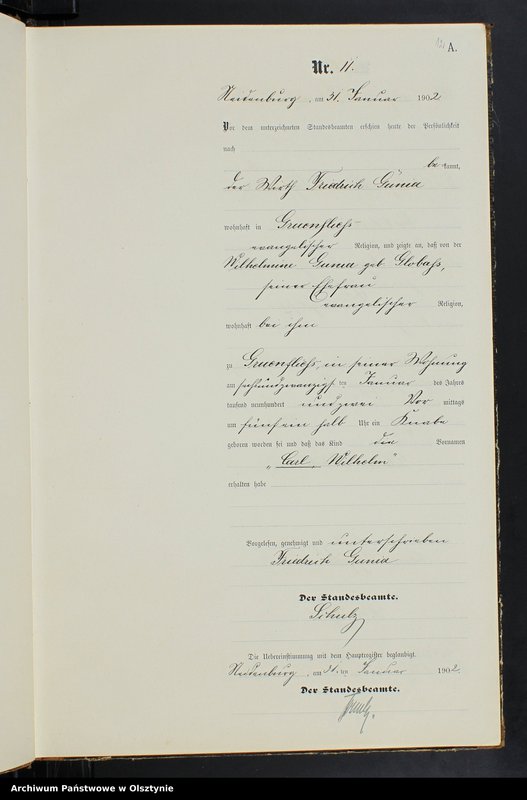 A.
Nr. 11.
Neidenburg, am 31. Januar 1902.
Vor dem unterzeichneten Standesbeamten erschien heute der Persönlichkeit
nach
bekannt,
der Wirth Friedrich Gunia
wohnhaft in Gruenfliess
evangelischer Religion, und zeigte an, daß von der
Wilhelmine Gunia geb.
seiner Ehefrau
evangelischer Religion,
wohnhaft bei ihm
zu Gruenfliess, in seiner Wohnung
am sechsundzwanzigsten Januar des Jahres
tausend neunhundert und zwei Vormittags
um fünf ein halb Uhr ein Knabe
geboren worden sei und daß das Kind die Vornamen
„Carl, Wilhelm“
erhalten habe
Vorgelesen, genehmigt und unterschrieben
Friedrich Gunia
Der Standesbeamte.
Schulz
Die Uebereinstimmung mit dem Hauptregister beglaubigt.
Neidenburg, am 31. ten Januar 1902.
Der Standesbeamte.
Archiwum Państwowe w Olsztynie